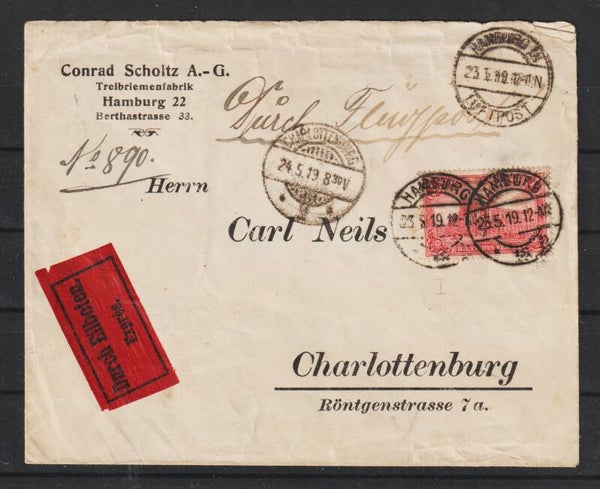 Conrad Scholtz A.-G.
Treibriemenfabrik
Hamburg 22
Berthastrasse 33.
No 890.
Durch Flugpost
HAMBURG
23.5.19.12-1N
LUFTPOST
CHARLOTTENBURG
24.5.19.8
Herrn
HAMBURG
23.5.19.12-
HAMBURG
23.5.19.12-
Carl Neils
Durch Eilboten.
Expres.
Charlottenburg
Röntgenstrasse 7a.